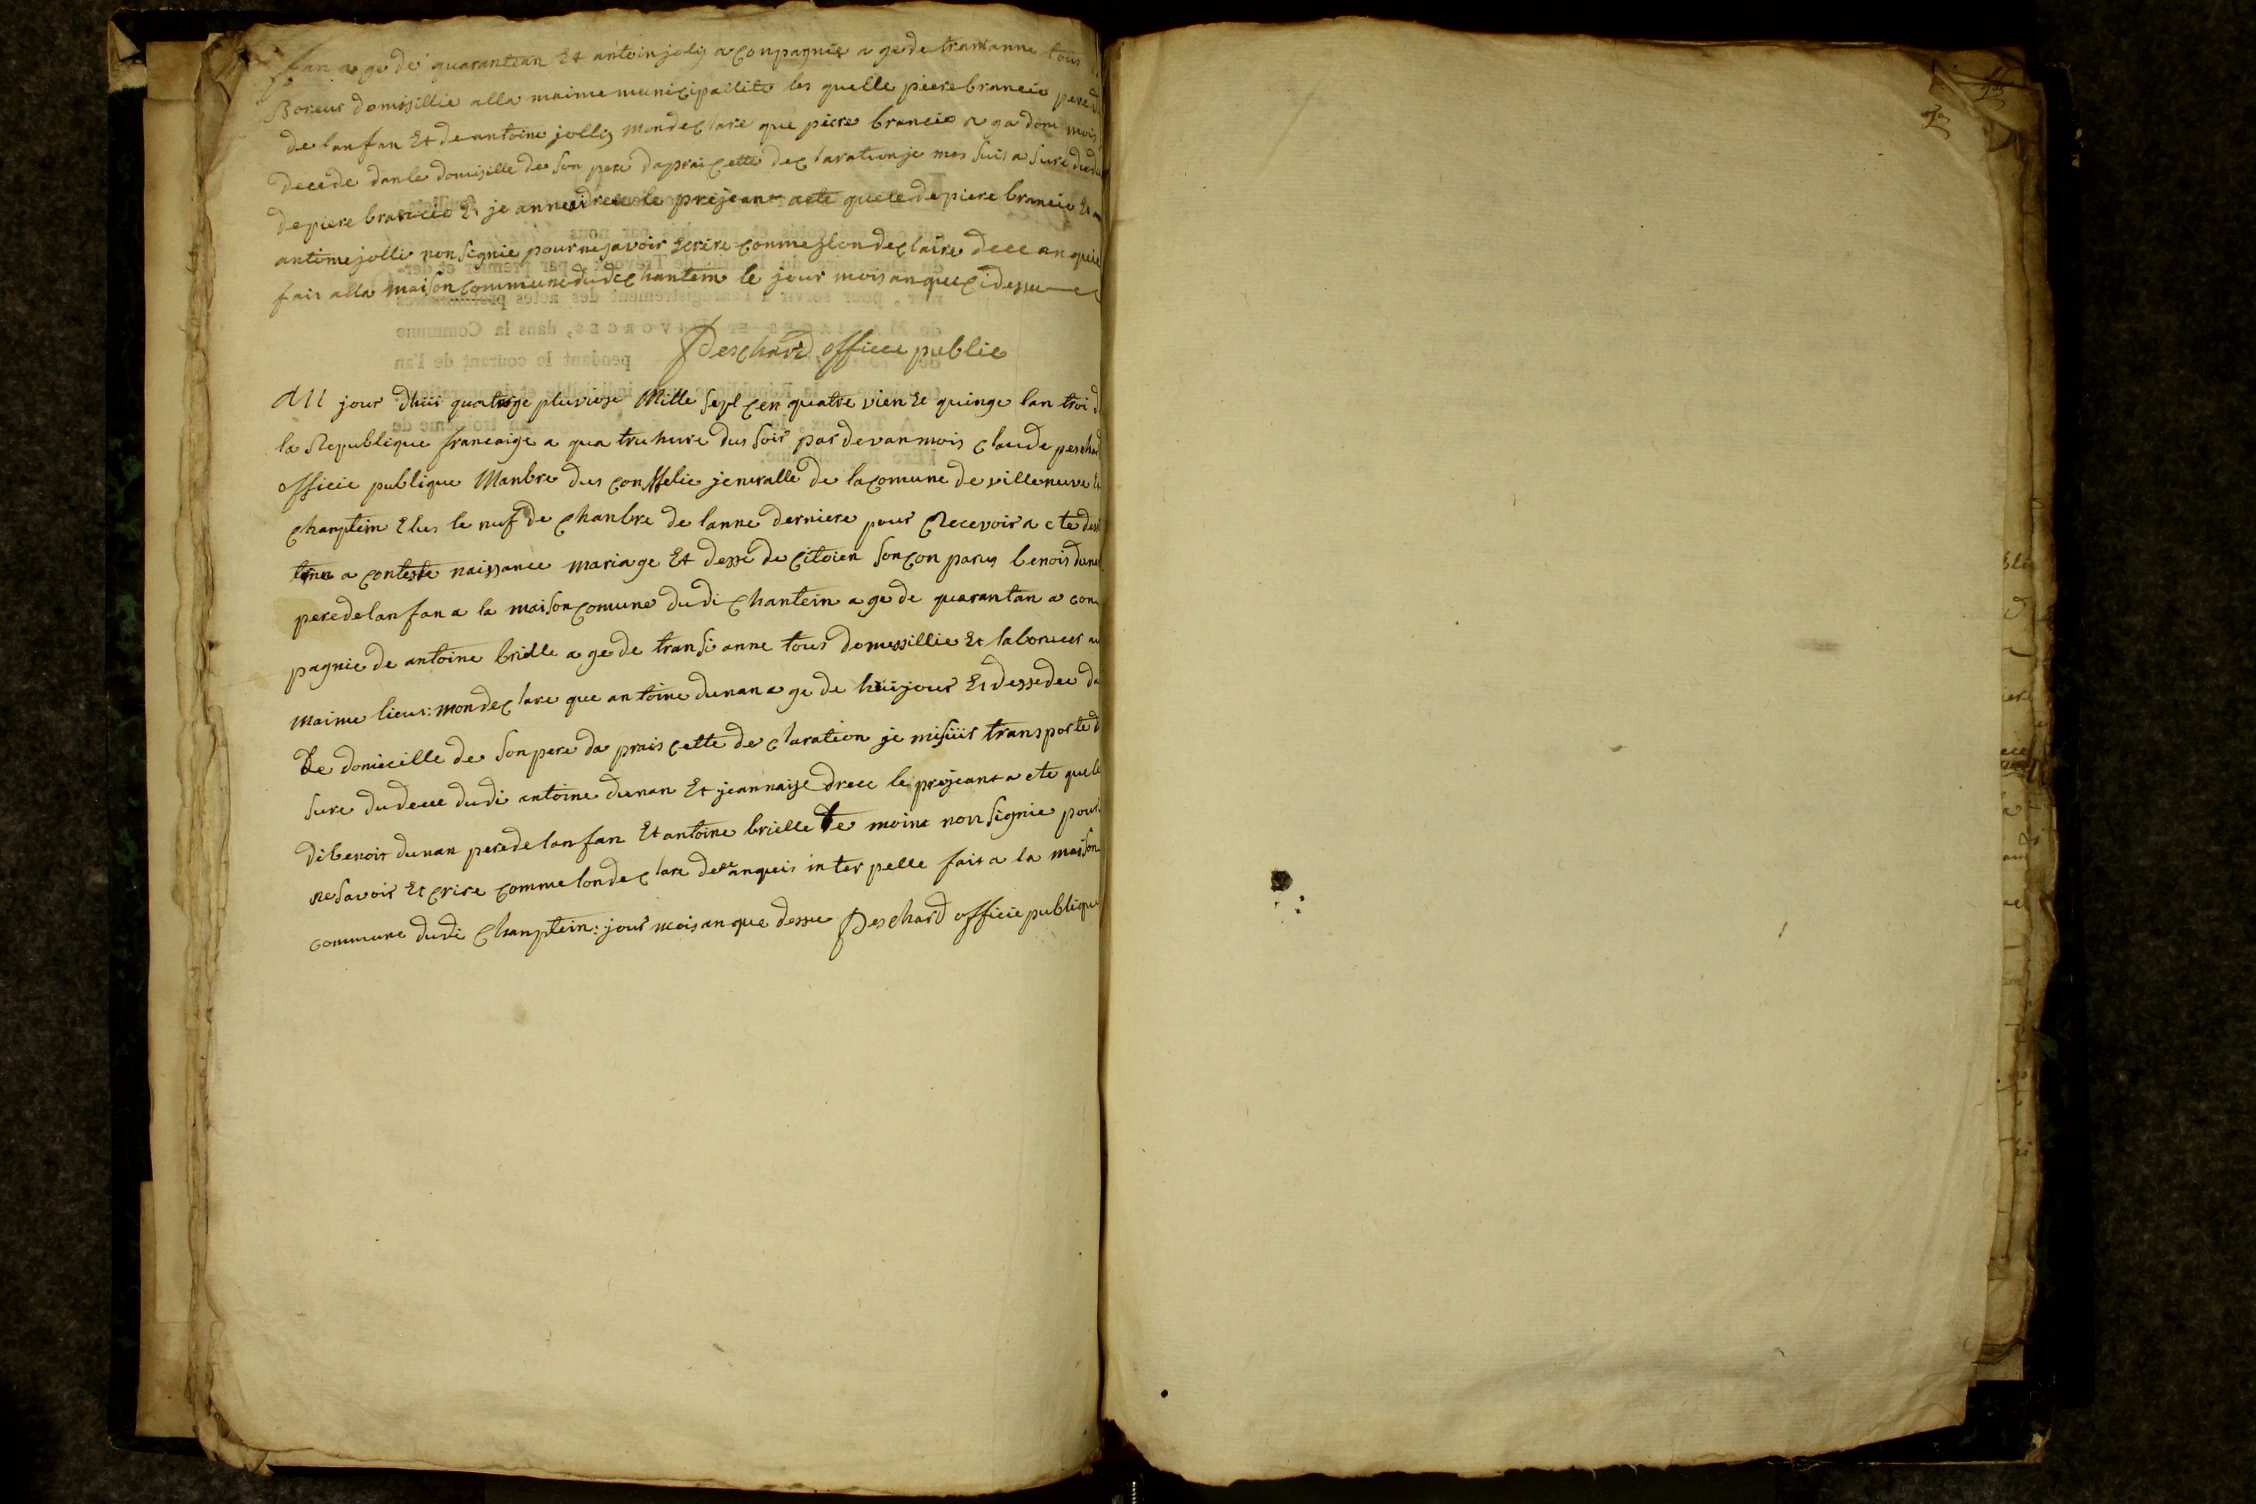 fan a ge de quarantean Et antoin jolis a conpagnie a ge de trantanne tous
Boreur domisillie alla maime municipallite les quelle piere brancie pere
de lanfan Et de antoine jollis mon declare que piere brancie a ga dom mois
decede dan le domisille de son pere daprai cette declaration je mes suis a sure du de
de piere brancie Et je anne dresse le prejeant acte que le de piere brancie Et
antoine jolli non signie pour ne savoir Ecrire conme slon declaire dece an quie
fait alla maison commune dudi chantein le jour mois an que cidessu
Peschard officie public
AU jour dhui quatorge pluviose Mille sept cen quatre vien Et quinge lan troi d
la Republique francaige a qua truhure dus soir par devan mois claude peschar
officie publique Manbre dus consellie jeneralle de la comune de villeneuve Et
chanptein Elus le nuf de chanbre de lanne derniere pour Recevoir acte des
tine a conteste naissance mariage Et desse de citoien son con parus benois dunan
pere de lanfan a la maison comune dudi chantein a ge de quarantan a con
pagnie de antoine brielle a ge de transi anne tous domissillie Et laboreur au
maime lieus: mon declare que antoine dunan a ge de hui jour Et dessedee da
Le domicille de son pere da prais cette declaration je mi suis transporte d
sure du dece dudi antoine dunan Et jeannaise drece le prejeant acte que le
di benoit dunan pere de lanfan Et antoine brielle Te moint non signie pour
ne savoir Et crire comme lon declare de ce anqueis inter pelle fait a la maison
commune dudi chanptein: jour mois an que dessue Peschard officie publique